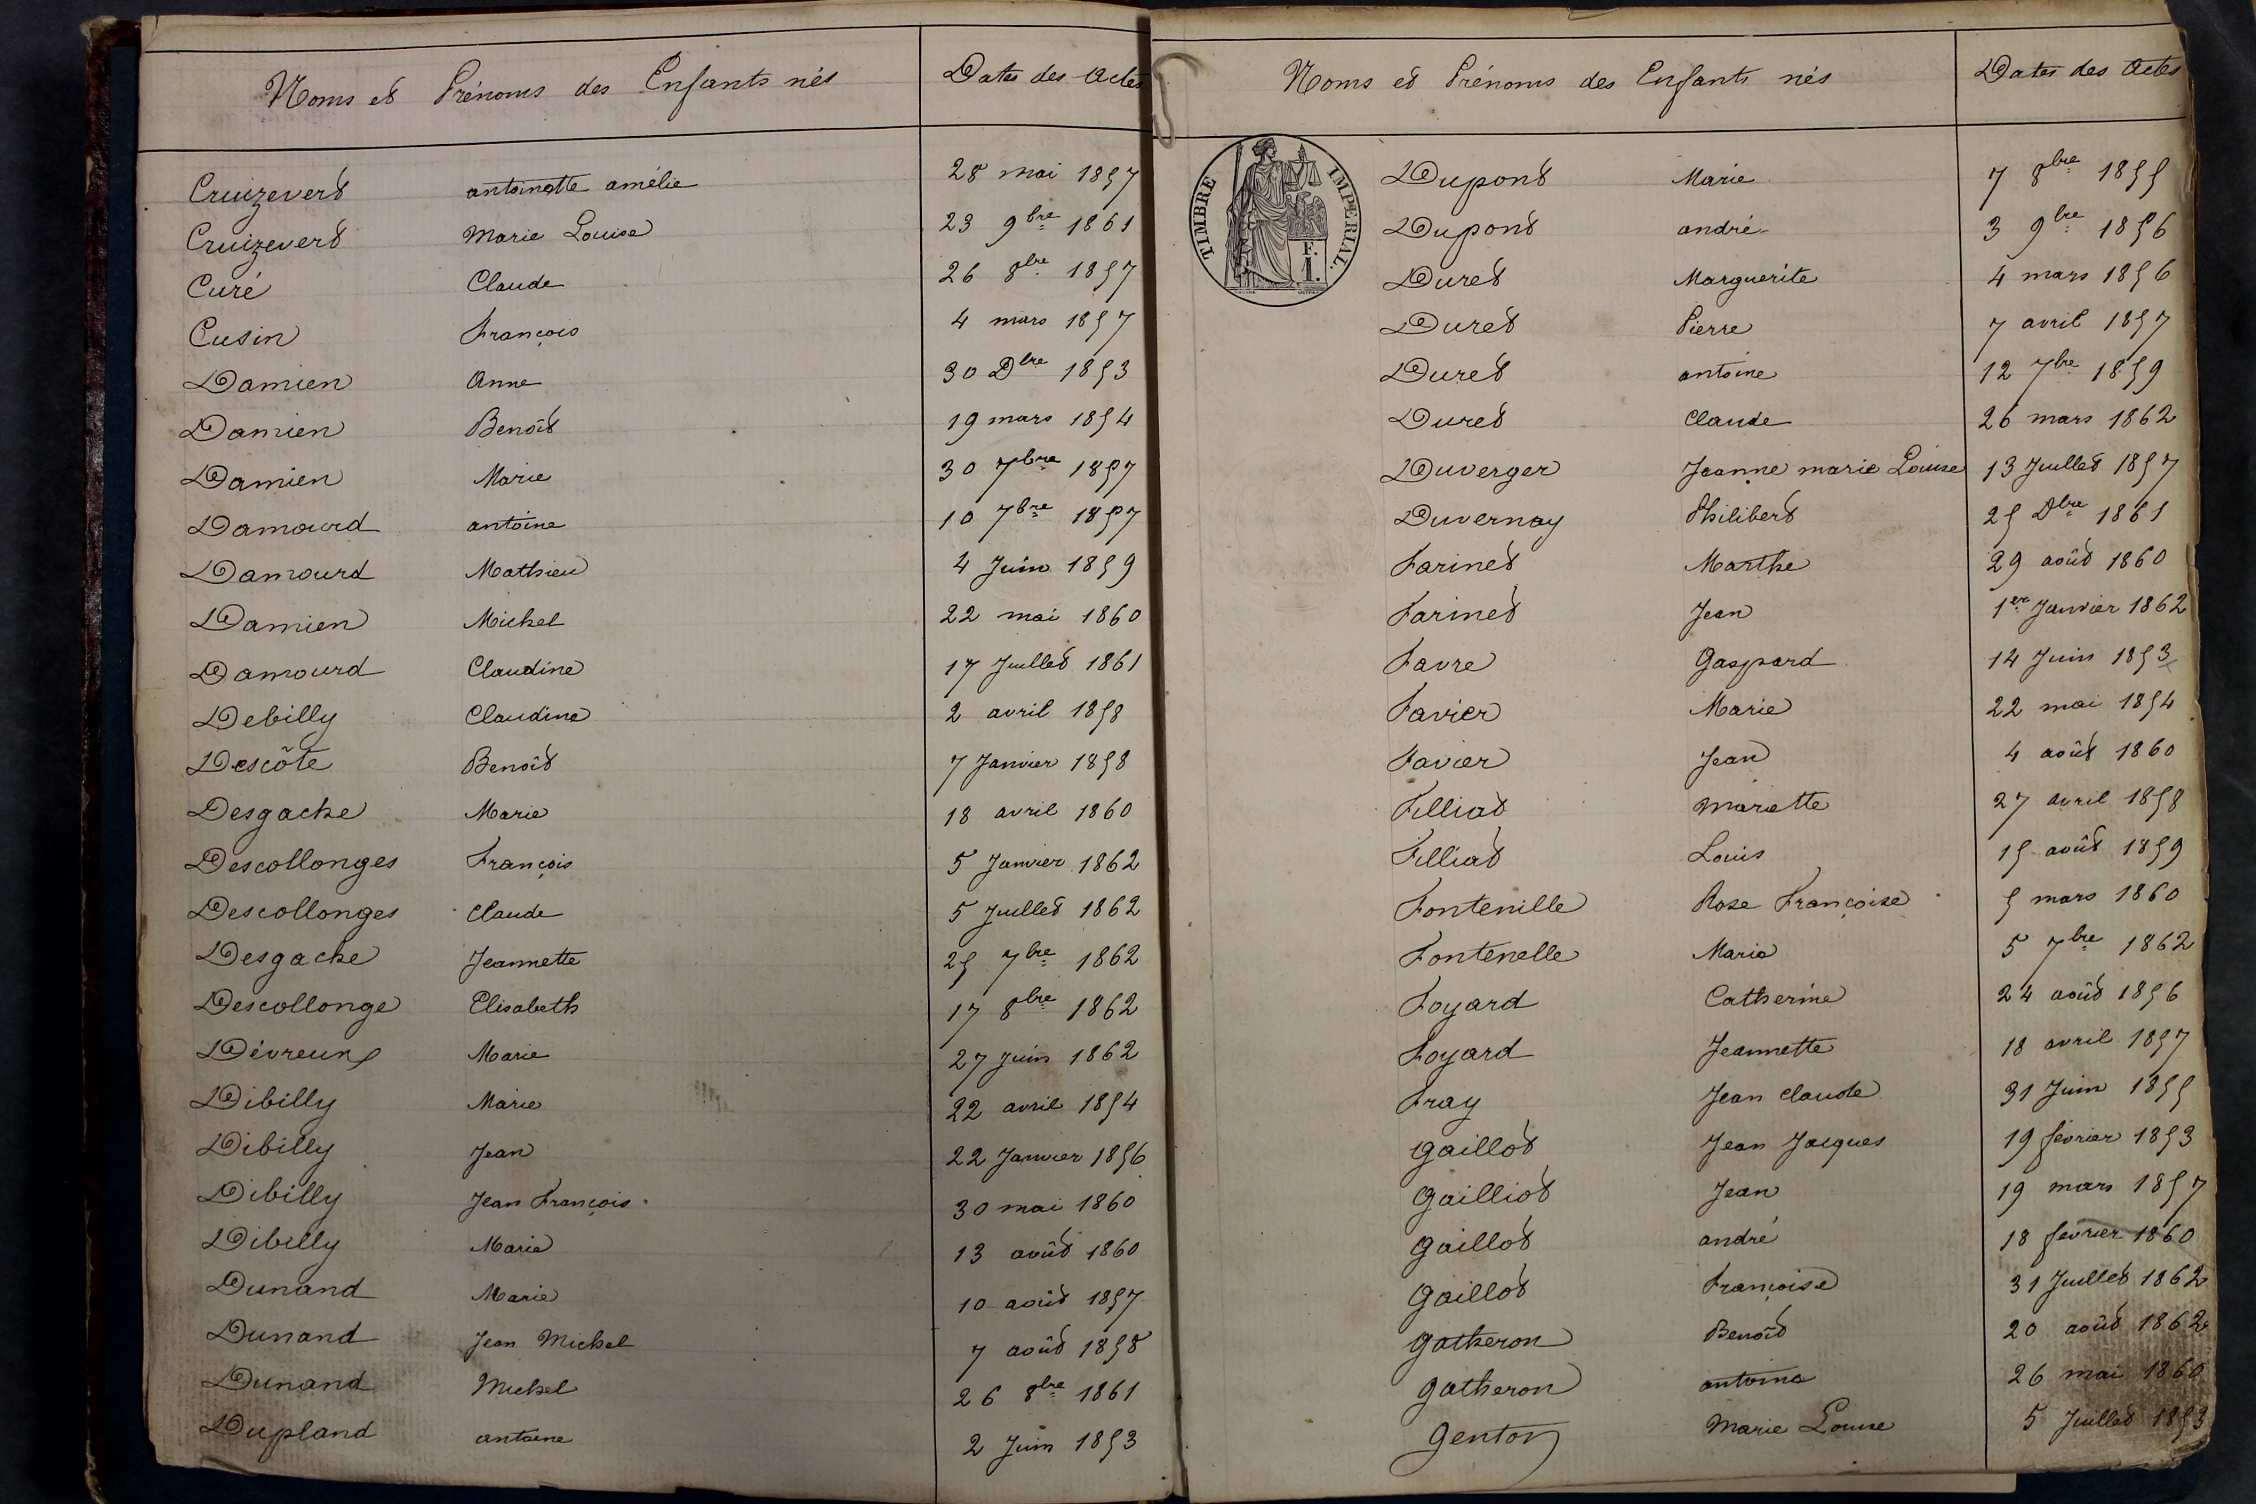 Noms et Prénoms des Enfants nés Dates des Actes
Cruizevert antoinette amélie 28 mai 1857
Cruizevert Marie Louise 23 9bre 1861
Curé Claude 26 8bre 1857
Cusin François 4 mars 1857
Damien Anne 30 Dbre 1853
Damien Benoît 19 mars 1854
Damien Marie 30 7bre 1857
Damourd antoine 10 7bre 1857
Damourd Mathieu 4 Juin 1859
Damien Michel 22 mai 1860
Damourd Claudine 17 Juillet 1861
Debilly Claudine 2 avril 1858
Descôte Benoît 7 Janvier 1858
Desgache Marie 18 avril 1860
Descollonges François 5 Janvier 1862
Descollonges Claude 5 Juillet 1862
Desgache Jeannette 25 7bre 1862
Descollonge Elisabeth 17 8bre 1862
Dévreux Marie 27 Juin 1862
Dibilly Marie 22 avril 1854
Dibilly Jean 22 Janvier 1856
Dibilly Jean François 30 mai 1860
Dibilly Marie 13 août 1860
Dunand Marie 10 août 1857
Dunand Jean Michel 7 août 1858
Dunand Michel 26 8bre 1861
Dupland antoine 2 Juin 1853
Noms et Prénoms des Enfants nés Dates des Actes
TIMBRE IMPERIAL.
F.
1.
Dupont Marie 7 8bre 1855
Dupont andré 3 9bre 1856
Duret Marguerite 4 mars 1856
Duret Pierre 7 avril 1857
Duret antoine 12 7bre 1859
Duret Claude 26 mars 1862
Duverger Jeanne marie Louise 13 Juillet 1857
Duvernay Philibert 25 Dbre 1861
Farinet Marthe 29 août 1860
Farinet Jean 1er Janvier 1862
Favre Gaspard 14 Juin 1853
Favier Marie 22 mai 1854
Favier Jean 4 août 1860
Filliat Mariette 27 avril 1858
Filliat Louis 15 août 1859
Fontenille Rose Françoise 5 mars 1860
Fontenelle Marie 5 7bre 1862
Foyard Catherine 24 août 1856
Foyard Jeannette 18 avril 1857
Fray Jean Claude 31 Juin 1855
Gaillot Jean Jacques 19 février 1853
Gailliot Jean 19 mars 1857
Gaillot andré 18 février 1860
Gaillot Françoise 31 Juillet 1862
Gatheron Benoît 20 août 1862
Gatheron antoine 26 mai 1860
Genton Marie Louise 5 Juillet 1853